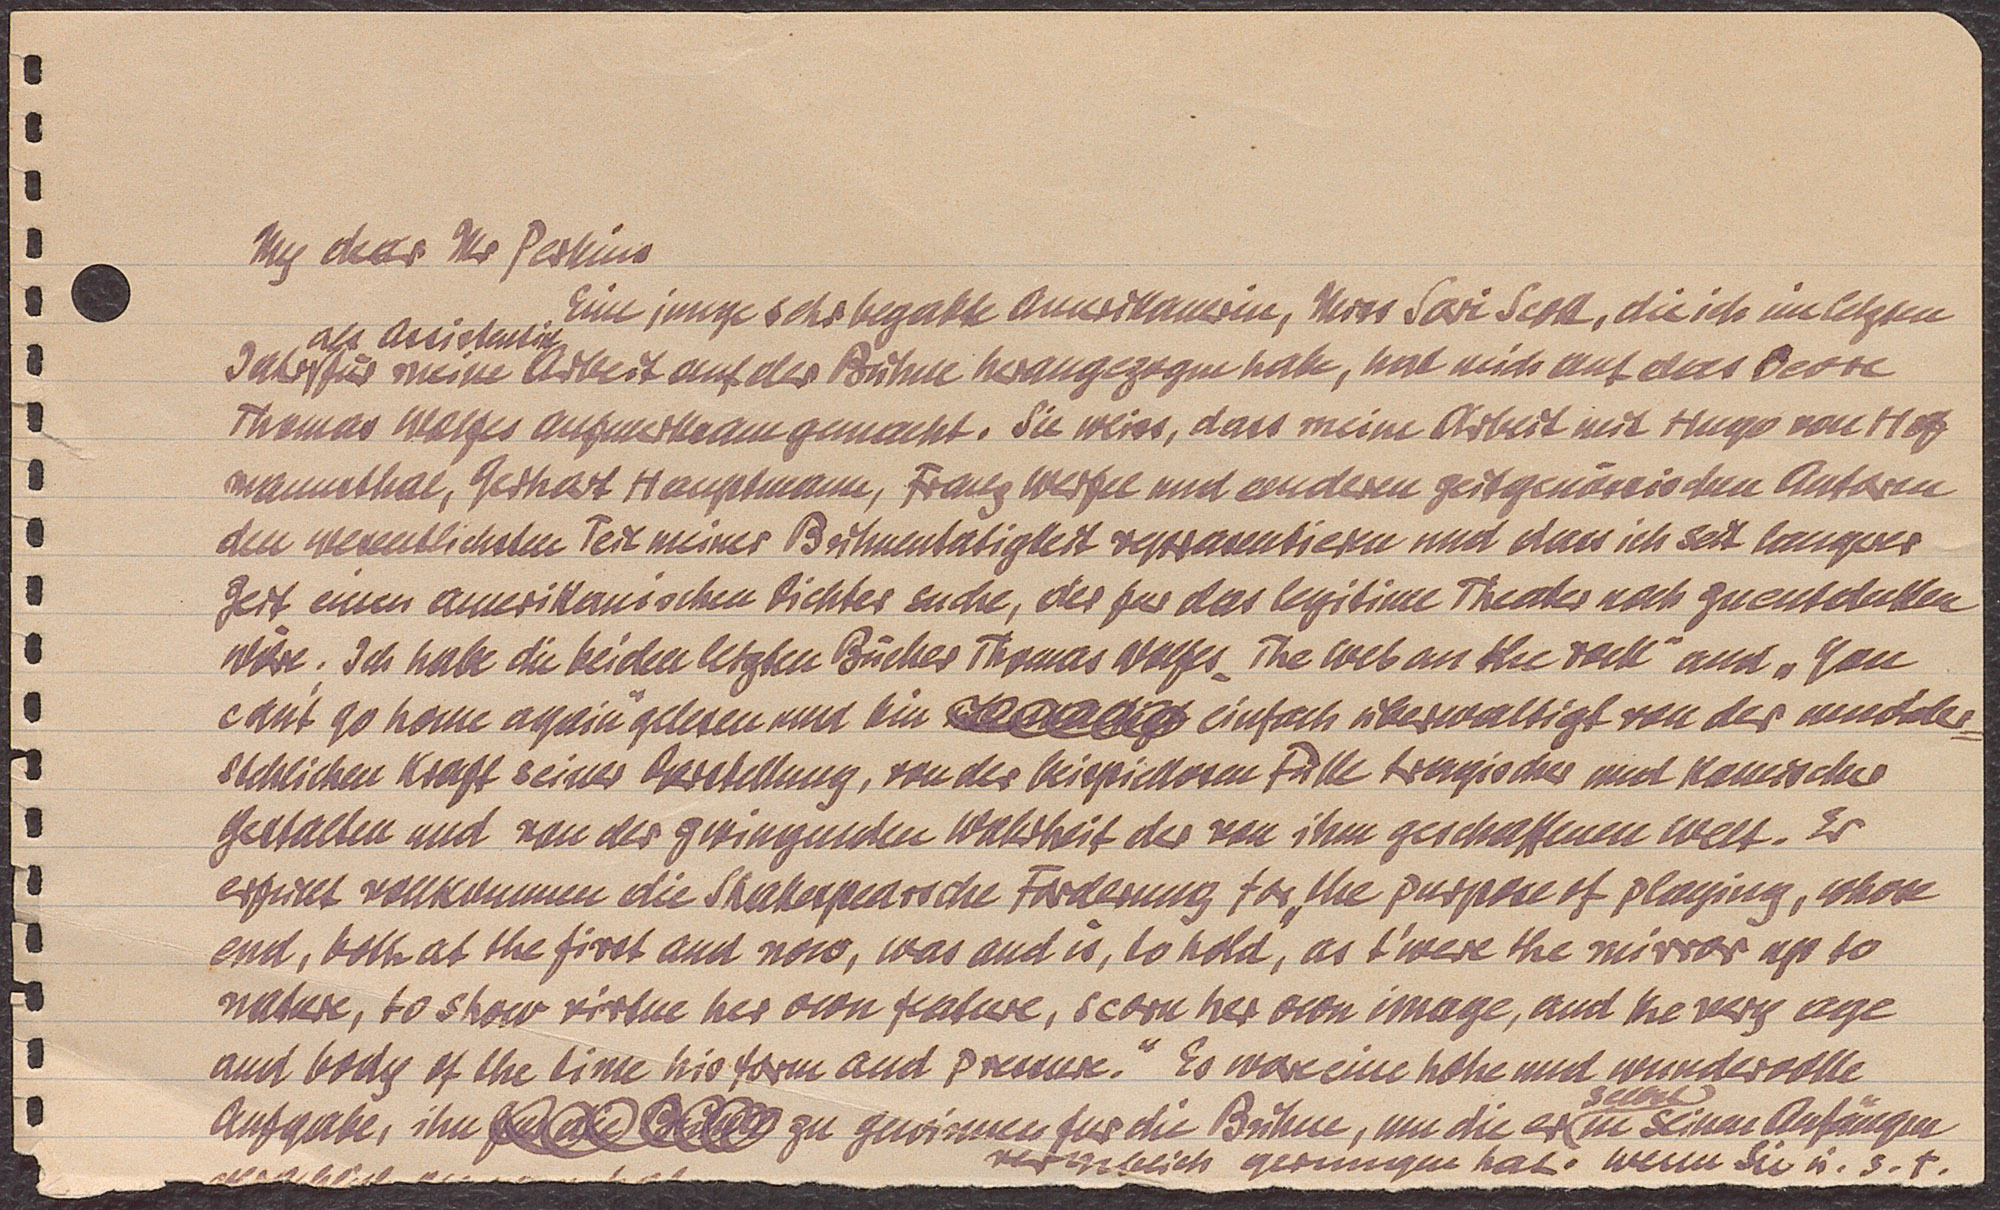 My dear Mr Perkins
Eine junge sehr begabte Amerikanerin, Miss Sari Scott, die ich im letzten
als Assistentin
Jahr für meine Arbeit auf der Bühne herangezogen habe, hat mich auf das Oeuvre
Thomas Wolfes aufmerksam gemacht. Sie weiss, dass meine Arbeit mit Hugo von Hof
mannsthal, Gerhart Hauptmann, Franz Werfel und anderen zeitgenössischen Autoren
den wesentlichsten Teil meiner Bühnentätigkeit repräsentieren und dass ich seit langer
Zeit einen amerikanischen Dichter suche, der für das legitime Theater noch zu entdecken
wäre. Ich habe die beiden letzten Bücher Thomas Wolfes „The Web an the rock" and „You
can't go home again" gelesen und bin einfach überwältigt von der unwider=
stehlichen Kraft seiner Darstellung, von der beispiellosen Fülle tragischer und komischer
Gestalten und von der zwingenden Wahrheit der von ihm geschaffenen Welt. Er
erfüllt vollkommen die Shakespearsche Forderung for „the purpose of playing, whose
end, both at the first and now, was and is, to hold, as t'were the mirror up to
nature, to show virtue her own feature, scorn her own image, and the very age
and body of the time his form and pressure." Es wäre eine hohe und wundervolle
Aufgabe, ihn zu gewinnen für die Bühne, um die er in seinen Anfängen
selbst
vergeblich gerungen hat. Wenn Sie u. s. f.